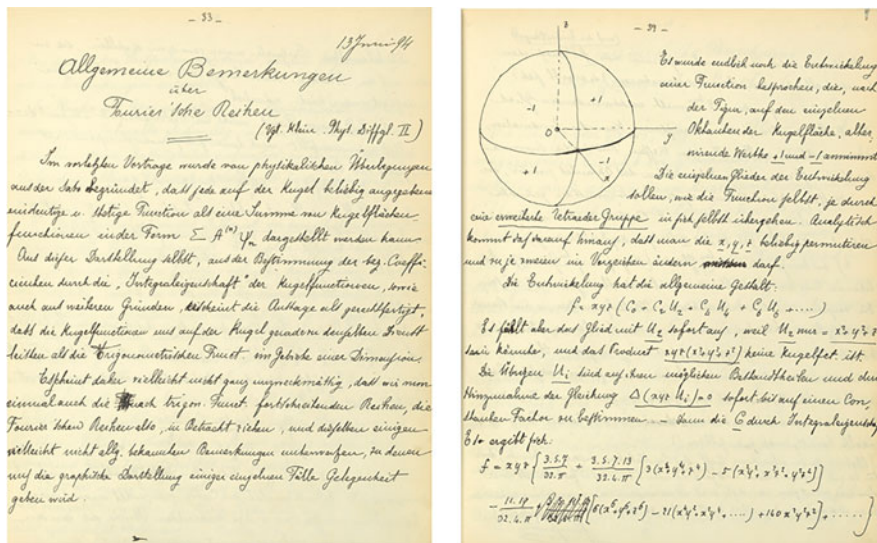 - 33 -
13 Juni 94
Allgemeine Bemerkungen
über
Fourier'sche Reihen
(Vgl. Klein. Phys. Diffgl. II)
Im vorletzten Vortrage wurde von physikalischen Überlegungen
aus der Satz begründet, dass jede auf der Kugel beliebig angegebene
eindeutige u. stetige Function als eine Summe von Kugelflächen-
functionen in der Form Σ A⁽ⁿ⁾ Ψₙ dargestellt werden kann.
Aus dieser Darstellung selbst, aus der Bestimmung der bez. Coeffi-
cienten durch die „Integraleigenschaft" der Kugelfunctionen, sowie
auch aus weiteren Gründen, erscheint die Aussage als gerechtfertigt,
dass die Kugelfunctionen uns auf der Kugel geradezu denselben Dienst
leisten als die Trigonometrischen Funct. im Gebiete einer Dimension.
Es scheint daher vielleicht nicht ganz unzweckmässig, dass wir nun
einmal auch die nach trigon. Funct. fortschreitenden Reihen, die
Fourier'schen Reihen also, in Betracht ziehen, und dieselben einigen
vielleicht nicht allg. bekannten Bemerkungen unterwerfen, zu denen
uns die graphische Darstellung einiger einzelnen Fälle Gelegenheit
geben wird.
- 34 -
z
-1
+1
O
y
-1
+1
x
Es wurde endlich noch die Entwickelung
einer Function besprochen, die, nach
der Figur, auf den einzelnen
Oktanten der Kugelfläche, alter-
nirende Werthe +1 und -1 annimmt
Die einzelnen Glieder der Entwickelung
sollen, wie die Function selbst, je durch
eine erweiterte Tetraeder Gruppe in sich selbst übergehen. Analytisch
kommt das darauf hinaus, dass man die x, y, z beliebig permutiren
und zu je zweien im Vorzeichen ändern darf.
Die Entwickelung hat die allgemeine Gestalt:
f = xyz (C₀ + C₂ U₂ + C₄ U₄ + C₆ U₆ + ....)
Es fällt aber das Glied mit U₂ sofort aus, weil U₂ nur = x²+y²+z²
sein könnte, und das Product xyz(x²+y²+z²) keine Kugelfct. ist.
Die Übrigen Uᵢ sind aus ihren möglichen Bestandtheilen und der
Hinzunahme der Gleichung Δ(xyz Uᵢ)=0 sofort bis auf einen Con-
stanten Factor zu bestimmen. - dann die C durch Integraleigenschaft
Es ergibt sich:
f = xyz { 3.5.7/32.π + 3.5.7.13/32.4.π [3(x⁴+y⁴+z⁴) - 5(x²y²+x²z²+y²z²)]
- 11.17/32.4.π [6(x⁶+y⁶+z⁶) - 21(x⁴y²+x²y⁴+....) + 140 x²y²z²] + ..... }